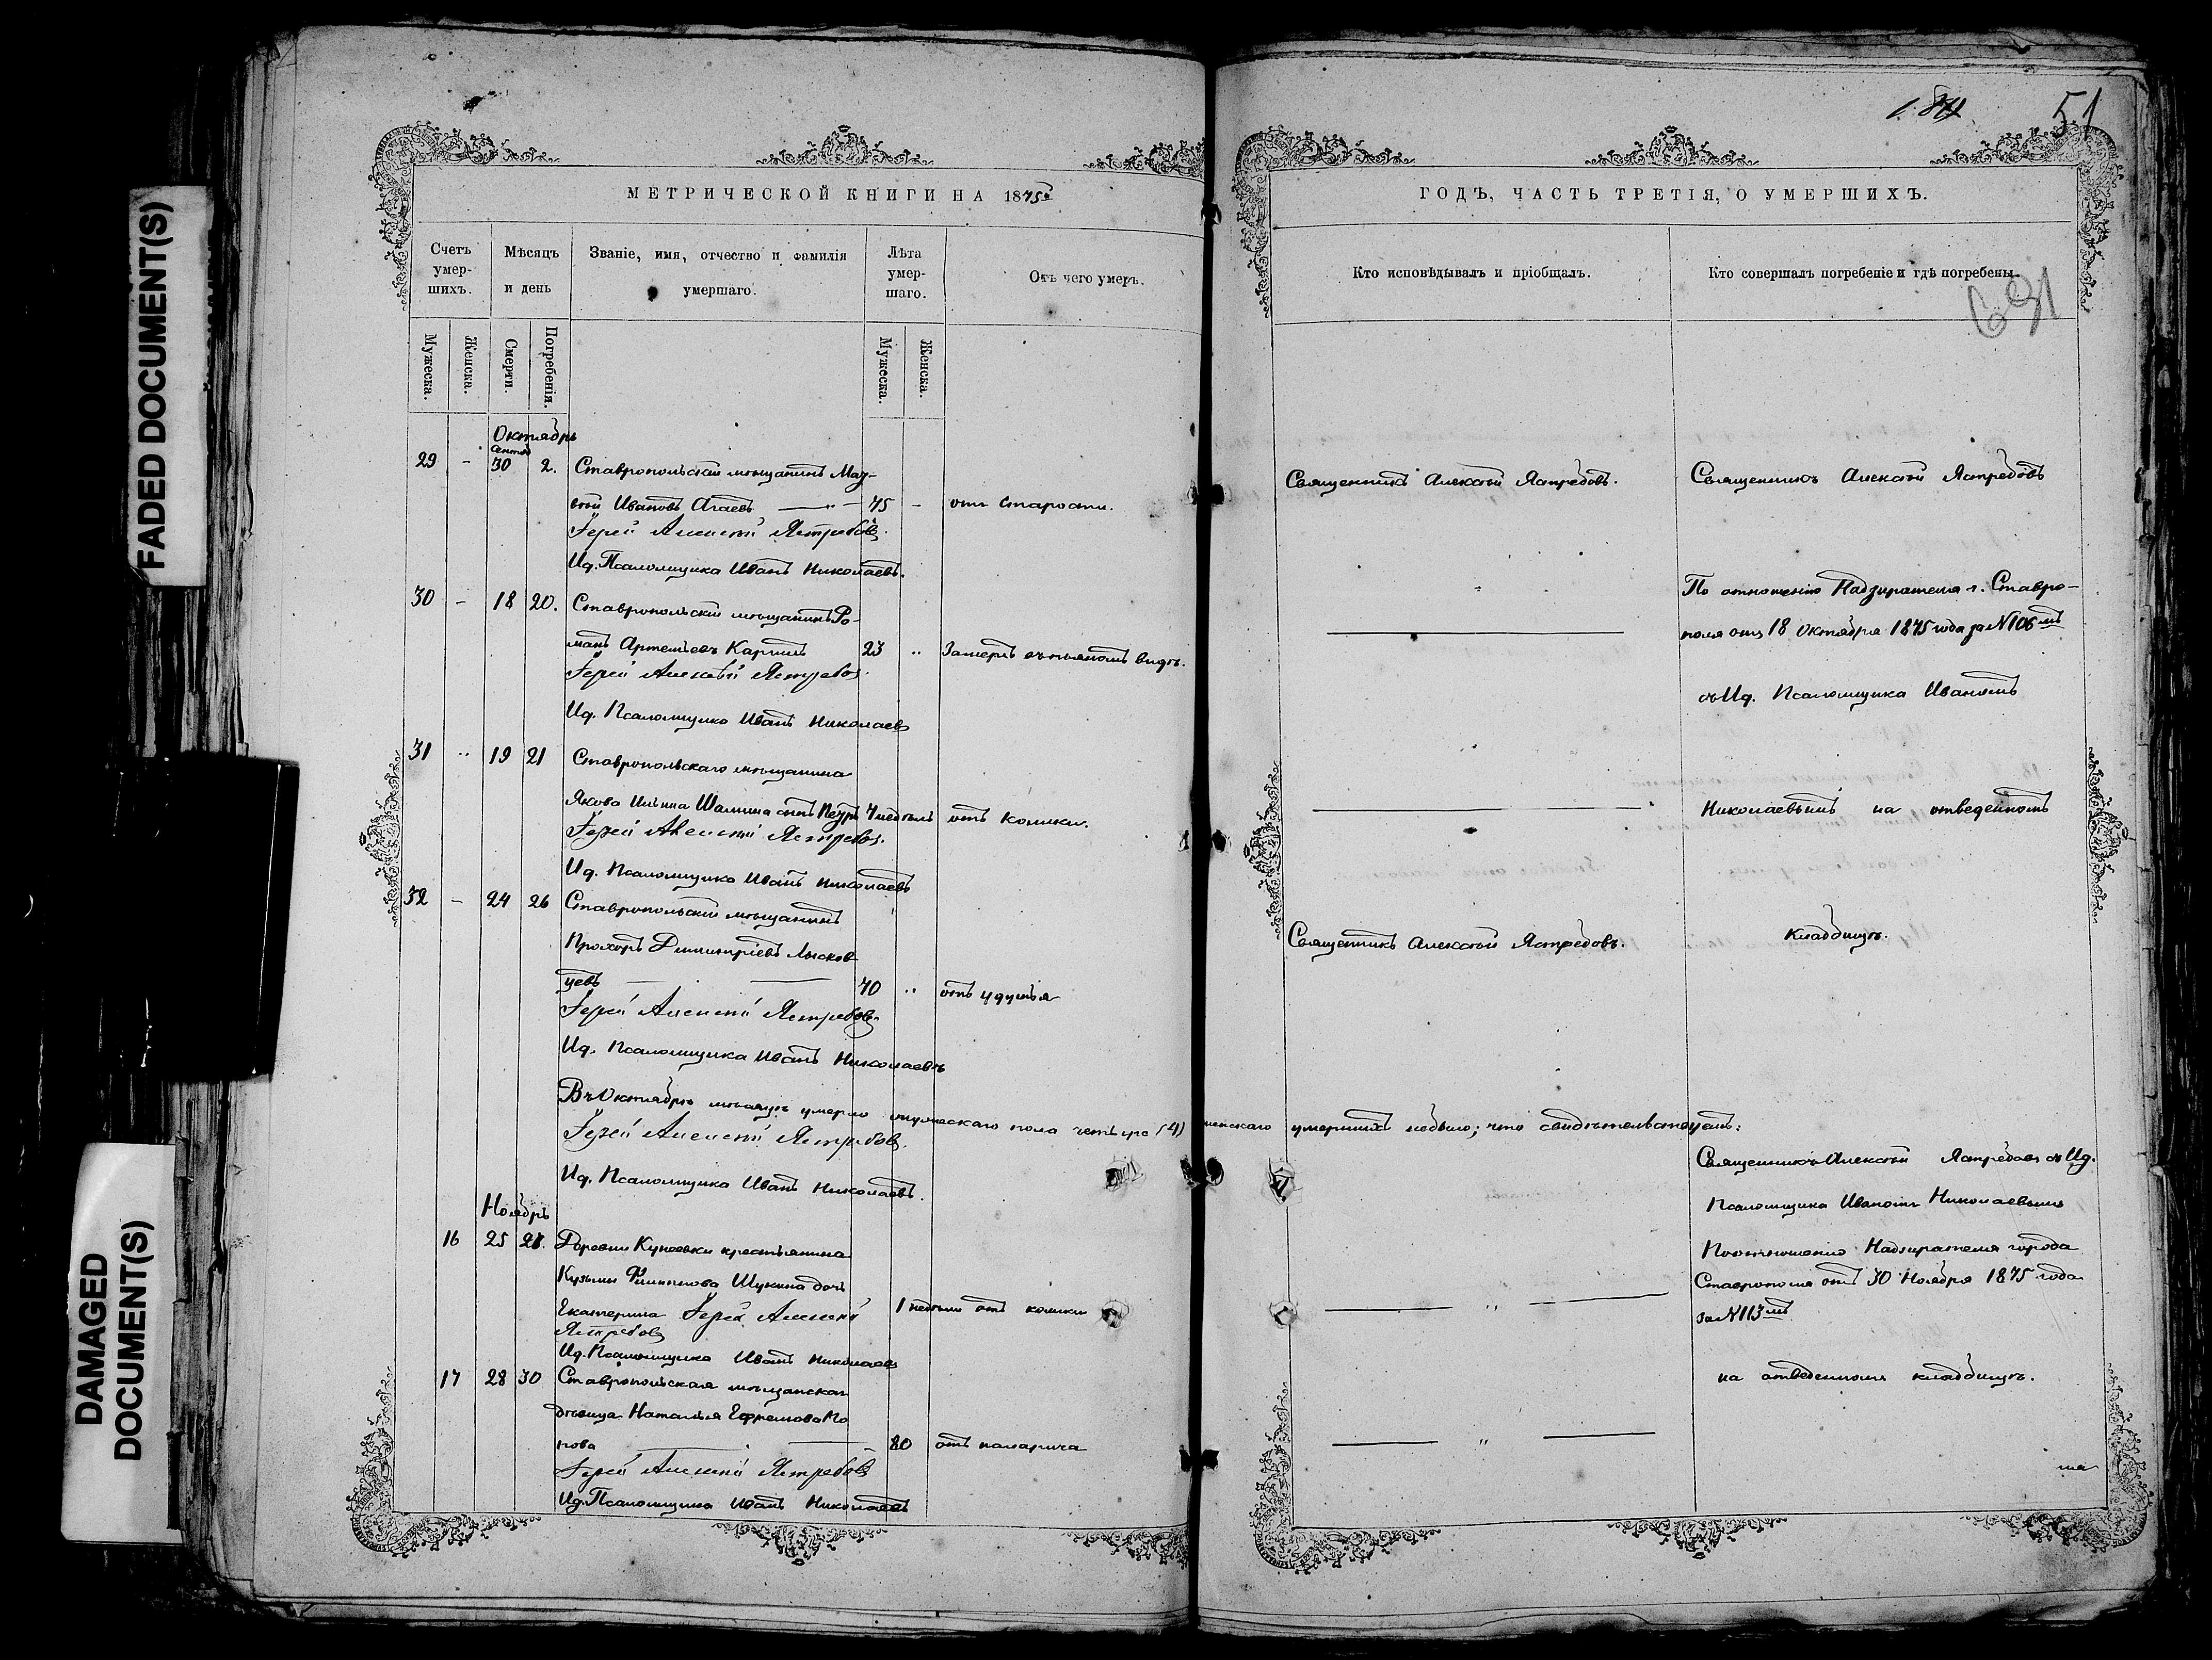 FADED DOCUMENT(S)
DAMAGED DOCUMENT(S)
МЕТРИЧЕСКОЙ КНИГИ НА 1875й
Счетъ умершихъ.
Мѣсяцъ и день
Званіе, имя, отчество и фамилія умершаго.
Лѣта умершаго.
Отъ чего умеръ.
Мужеска.
Женска.
Смерти.
Погребенія.
Мужеска.
Женска.
Октябрь
29 - 30 2. Ставропольскій мѣщанинъ Мат-
вѣй Ивановъ Агаевъ 75 - отъ старости.
Іерей Алексѣй Ястребовъ.
Ид. Псаломщика Иванъ Николаевъ.
30 - 18 20. Ставропольскій мѣщанинъ Ро-
манъ Артемьевъ 23 " Замерзъ въ пьяномъ видѣ.
Іерей Алексѣй Ястребовъ.
Ид. Псаломщика Иванъ Николаевъ
31 " 19 21 Ставропольскаго мѣщанина
Якова Ильина Шалина сынъ Петръ 7 недѣль отъ колики.
Іерей Алексѣй Ястребовъ.
Ид. Псаломщика Иванъ Николаевъ
32 - 24 26 Ставропольскій мѣщанинъ
Прохоръ Димитріевъ Лысков
цевъ 70 " отъ удушья
Іерей Алексѣй Ястребовъ
Ид. Псаломщика Иванъ Николаевъ
Въ Октябрѣ мѣсяцѣ умерло мужескаго пола четыре (4) женскаго умершихъ небыло; что свидѣтельствуемъ:
Іерей Алексѣй Ястребовъ.
Ид. Псаломщика Иванъ Николаевъ.
Ноябрь
16 25 27. Деревни Кунеевки крестьянина
Кузьмы Филиппова Щукина дочь
Екатерина Іерей Алексѣй 1 недѣли отъ колики
Ястребовъ
Ид. Псаломщика Иванъ Николаевъ
17 28 30 Ставропольская мѣщанская
дѣвица Наталья Ефремова По
пова 80 отъ паларича
Іерей Алексѣй Ястребовъ
Ид. Псаломщика Иванъ Николаевъ
51
ГОДЪ, ЧАСТЬ ТРЕТІЯ, О УМЕРШИХЪ.
Кто исповѣдывалъ и пріобщалъ.
Кто совершалъ погребеніе и гдѣ погребены.
Священникъ Алексѣй Ястребовъ.
Священникъ Алексѣй Ястребовъ
По отношенію Надзирателя г. Ставро-
поля отъ 18 Октября 1875 года за N 106мъ
съ Ид. Псаломщика Иваномъ
Николаевымъ на отведенномъ
Священникъ Алексѣй Ястребовъ.
Кладбищѣ.
Священникъ Алексѣй Ястребовъ съ Ид.
Псаломщика Иваномъ Николаевымъ
По отношенію Надзирателя города
Ставрополя отъ 30 Ноября 1875 года
за N 113мъ
на отведенномъ кладбищѣ.